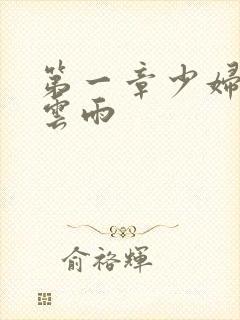 第一章少婦
雲雨
俞裕輝